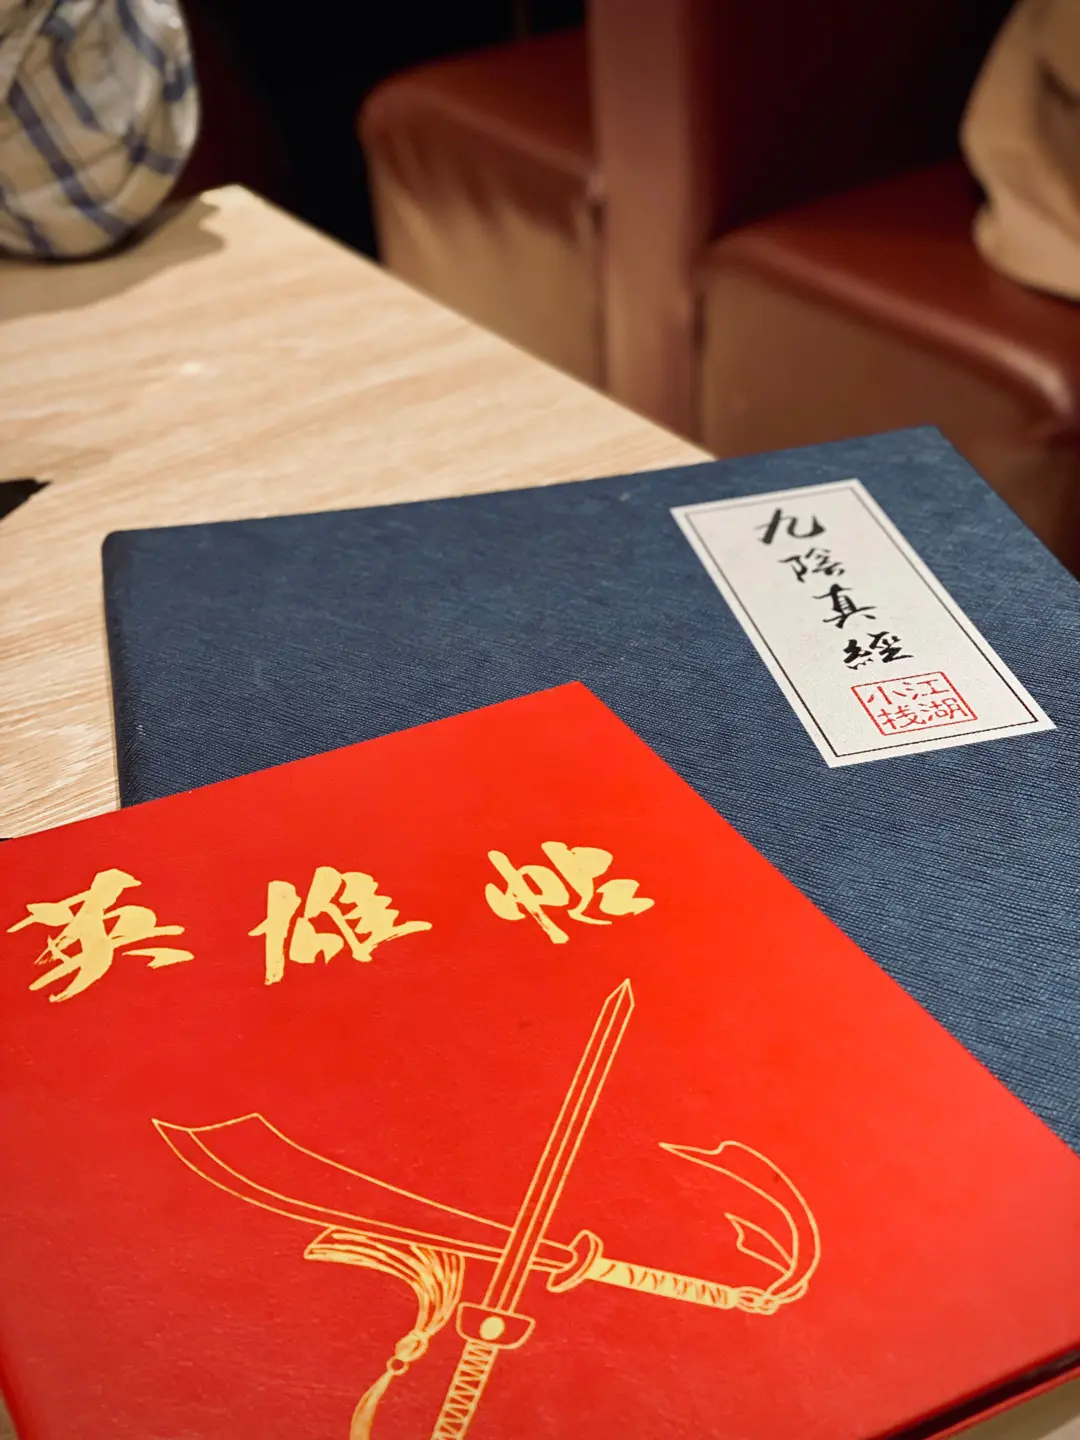 九陰真經
江湖
小栈
英雄帖